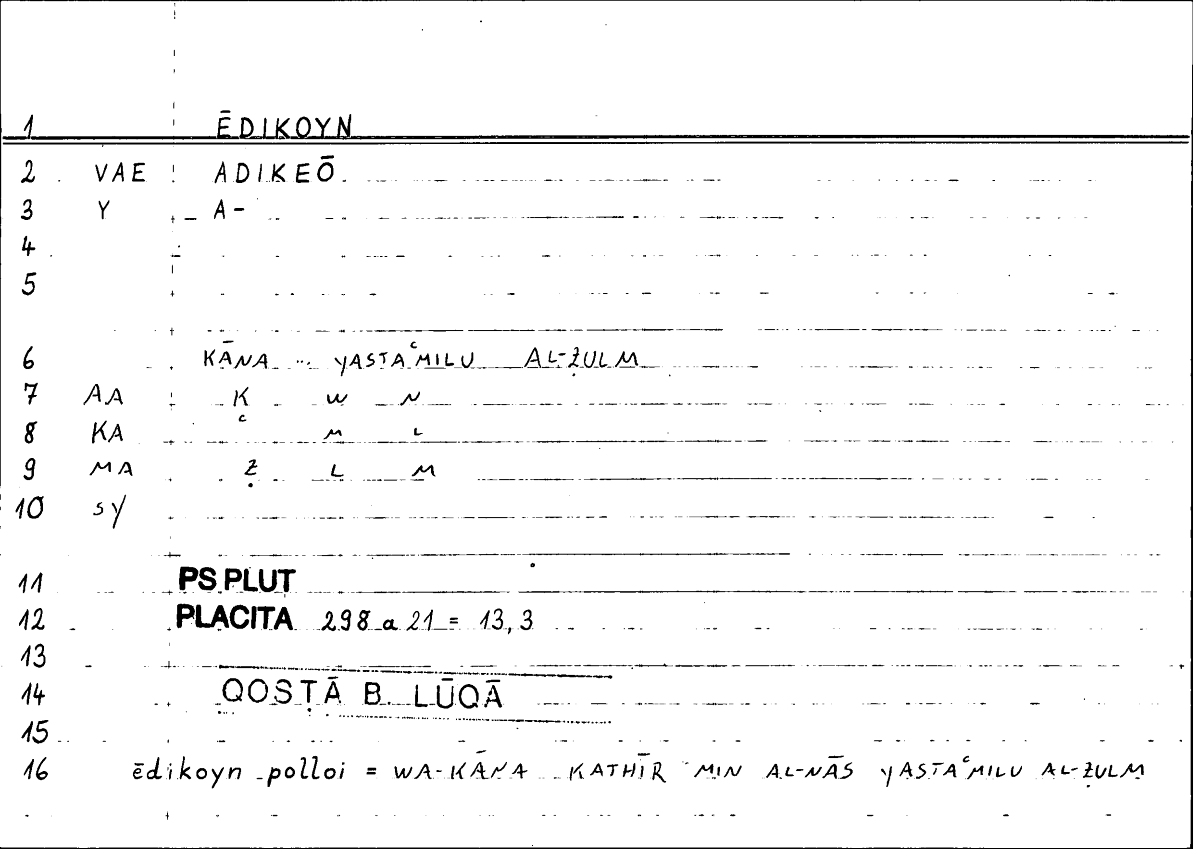 1 ĒDIKOYN
2 VAE ADIKEŌ
3 Y A-
4
5
6 KĀNA ... YASTAʿMILU AL-ẒULM
7 AA K W N
8 KA ʿ M L
9 MA Ẓ L M
10 SY
11 PS.PLUT
12 PLACITA 298 a 21 = 13,3
13
14 QOSṬĀ B. LŪQĀ
15
16 ēdikoyn polloi = WA-KĀNA KATHĪR MIN AL-NĀS YASTAʿMILU AL-ẒULM